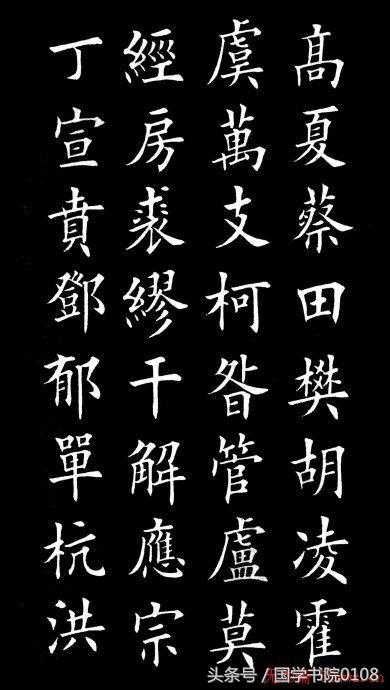 髙夏蔡田樊胡凌霍
虞萬支柯昝管盧莫
經房裘繆干解應宗
丁宣賁鄧郁單杭洪
头条号 / 国学书院0108